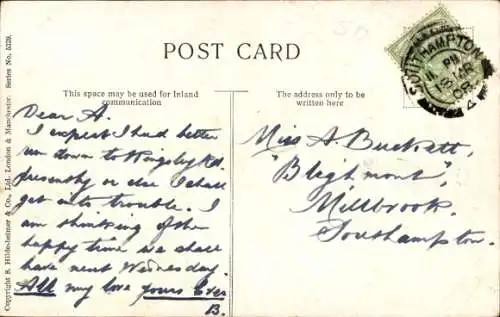 POST CARD
This space may be used for Inland
communication
The address only to be
written here
Dear A.
I expect I had better
run down to Kingsley Rd.
presently or else I shall
get into trouble. I
am thinking of the
happy time we shall
have next Wednesday.
All my love yours Ever
B.
Miss A. Buckett,
"Bleghmont",
Millbrook,
Southampton.
SOUTHAMPTON
11 PM
MR
08
4
Copyright S. Hildesheimer & Co., Ltd. London & Manchester. Series No. 5229.